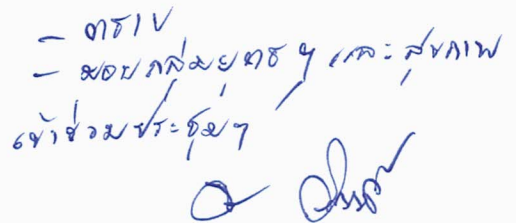 - ทราบ
- มอบกลุ่มยุทธฯ และสุขภาพ
เข้าร่วมประชุมฯ